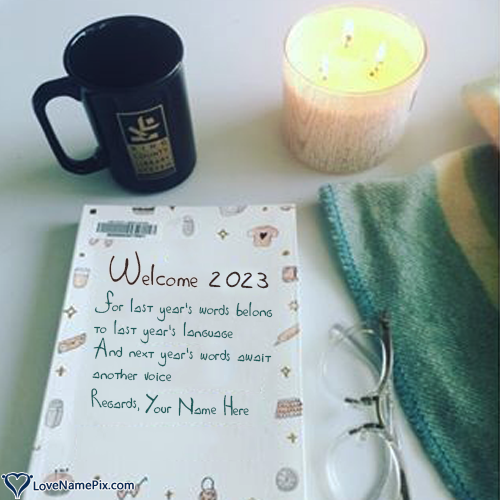 KING
COUNTY
LIBRARY
SYSTEM
Welcome 2023
For last year's words belong
to last year's language
And next year's words await
another voice
Regards, Your Name Here
LoveNamePix.com